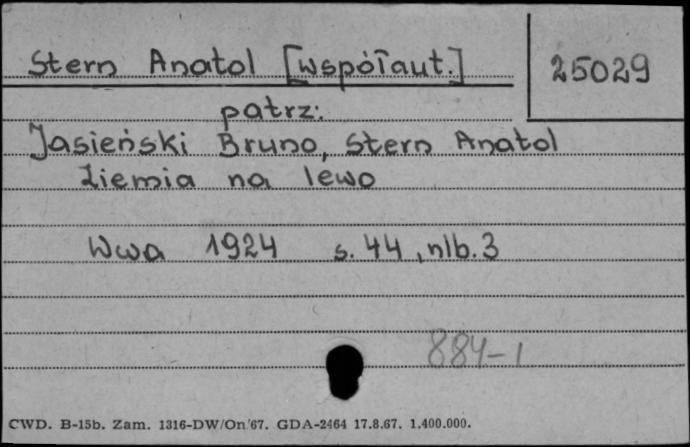 Stern Anatol [współaut.]
25029
patrz:
Jasieński Bruno, Stern Anatol
Ziemia na lewo
Wwa 1924 s. 44, nlb. 3
884-1
CWD. B-15b. Zam. 1316-DW/On/67. GDA-2464 17.8.67. 1.400.000.